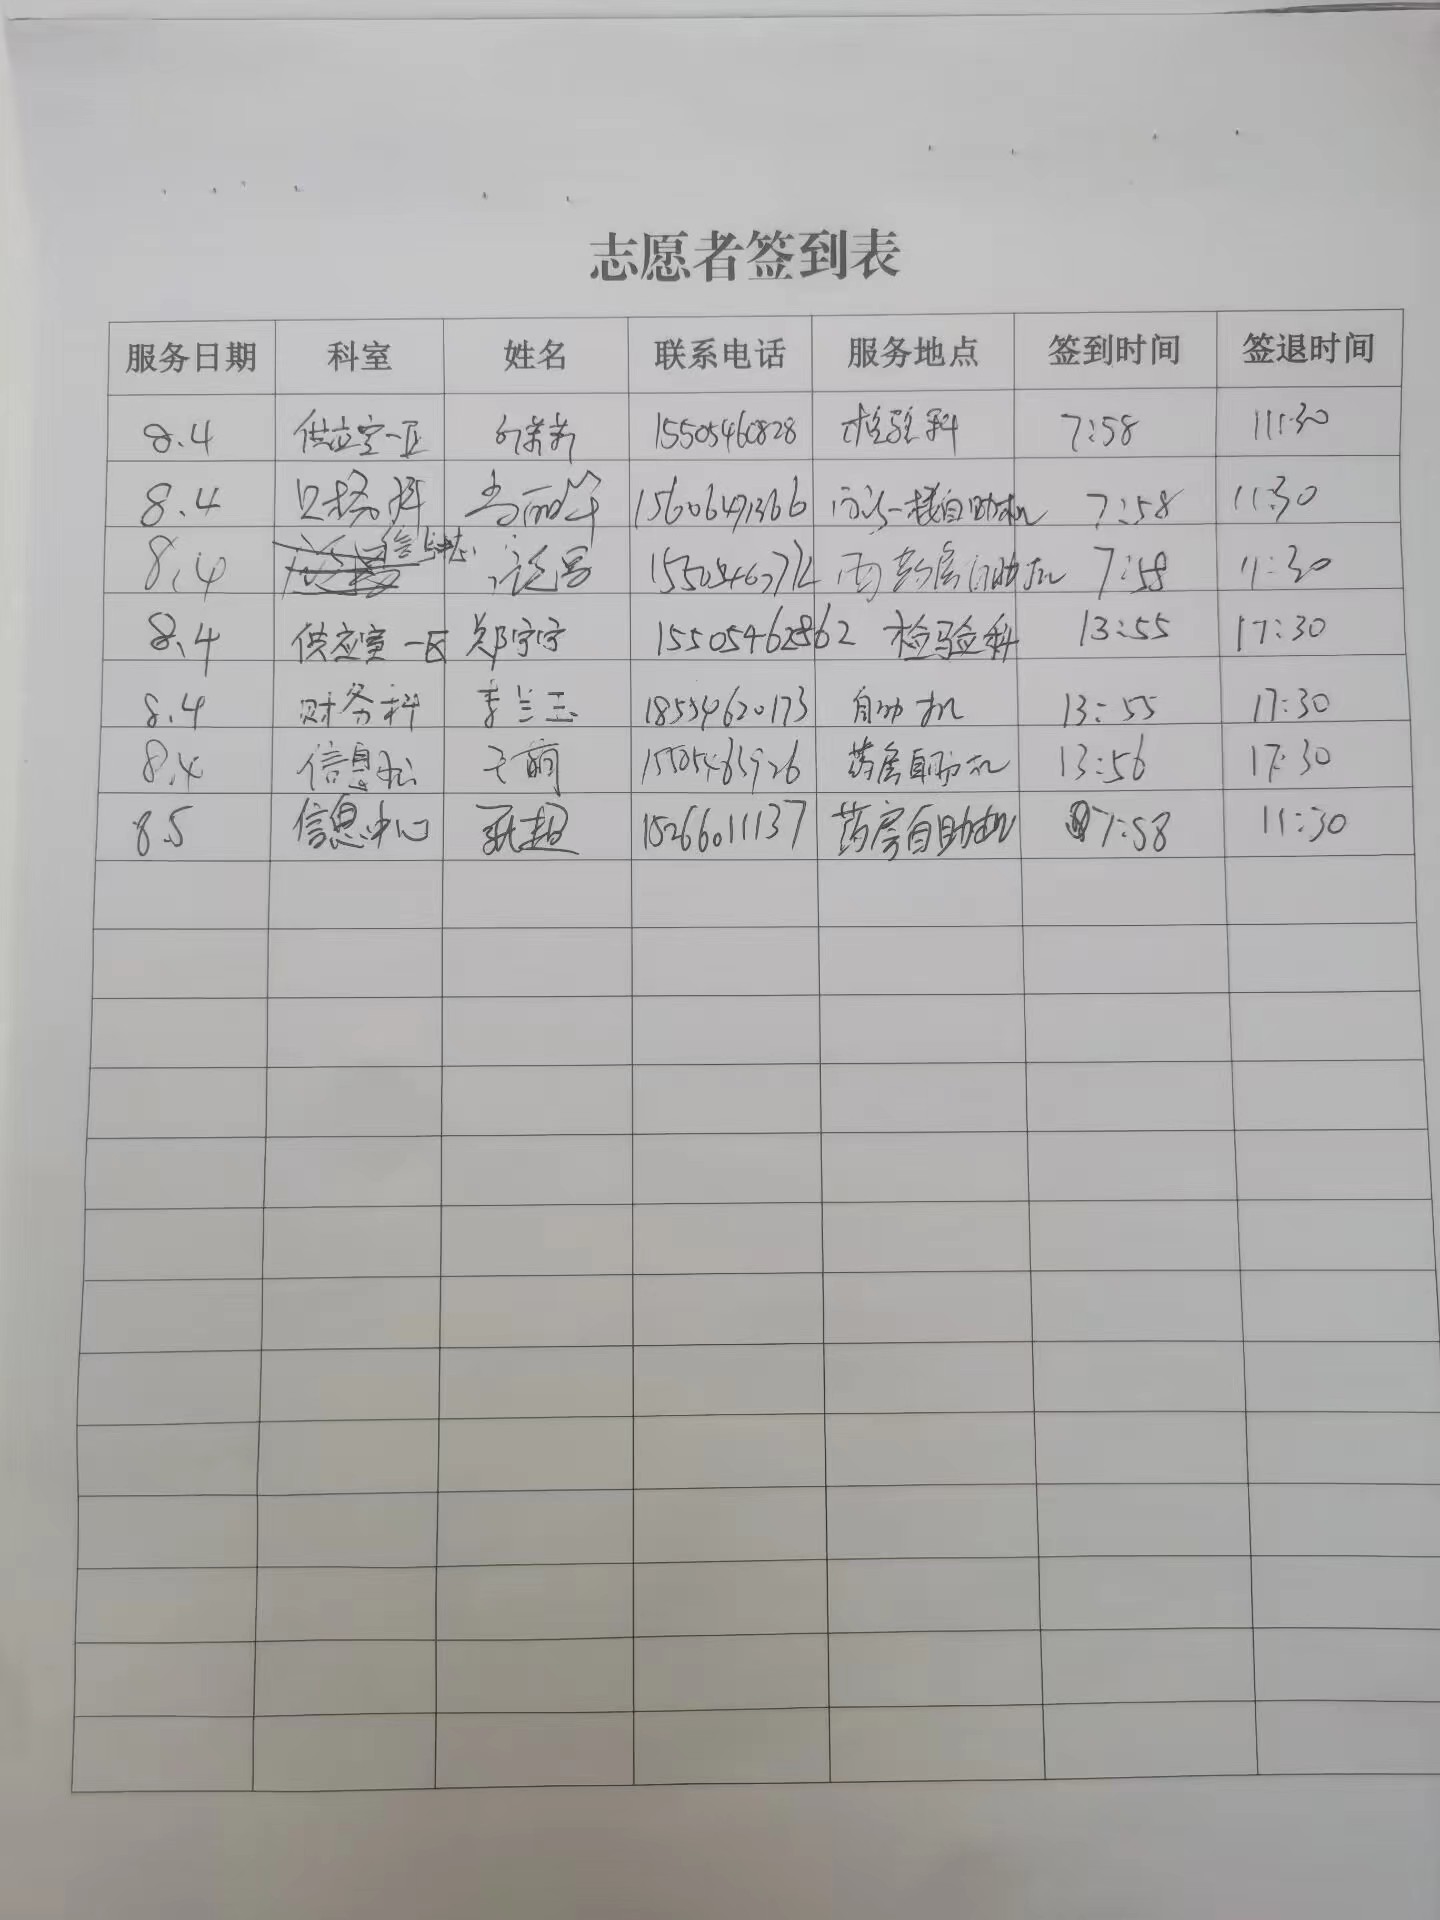 志愿者签到表
服务日期 科室 姓名 联系电话 服务地点 签到时间 签退时间
8.4 供应室一区 15505460828 检验科 7:58 11:30
8.4 财务科 15606491366 门诊一楼自助机 7:58 11:30
8.4 信息中心 西药房自助机 7:58 11:30
8.4 供应室一区 郑宇宇 15505462862 检验科 13:55 17:30
8.4 财务科 李兰玉 18554620173 自助机 13:55 17:30
8.4 信息 王萌 15505463926 药房自助机 13:56 17:30
8.5 信息中心 超 15266011137 药房自助机 7:58 11:30